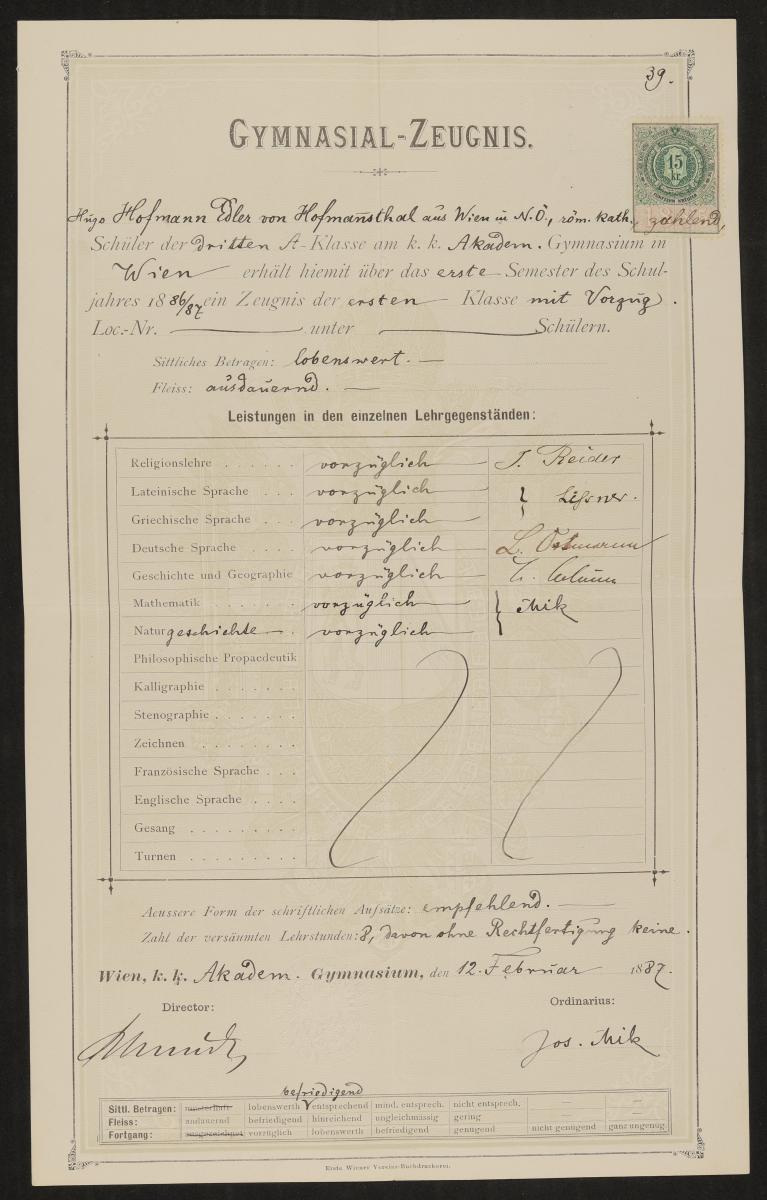 39.
GYMNASIAL-ZEUGNIS.
15
kr.
Hugo Hofmann Edler von Hofmannsthal aus Wien in N. Ö., röm. kath., zahlend,
Schüler der dritten A-Klasse am k. k. Akadem. Gymnasium in
Wien erhält hiemit über das erste Semester des Schul-
jahres 1886/87 ein Zeugnis der ersten Klasse mit Vorzug.
Loc.-Nr. unter Schülern.
Sittliches Betragen: lobenswert.
Fleiss: ausdauernd.
Leistungen in den einzelnen Lehrgegenständen:
Religionslehre . . . . . . vorzüglich J. Reider
Lateinische Sprache . . . vorzüglich
Griechische Sprache . . . vorzüglich
Deutsche Sprache . . . . vorzüglich
Geschichte und Geographie vorzüglich
Mathematik . . . . . . . vorzüglich Mik
Naturgeschichte . vorzüglich
Philosophische Propaedeutik
Kalligraphie . . . . . . .
Stenographie . . . . . . .
Zeichnen . . . . . . . .
Französische Sprache . . .
Englische Sprache . . . .
Gesang . . . . . . . . .
Turnen . . . . . . . . .
Aeussere Form der schriftlichen Aufsätze: empfehlend.
Zahl der versäumten Lehrstunden: 8, davon ohne Rechtfertigung keine.
Wien, k. k. Akadem. Gymnasium, den 12. Februar 1887.
Director: Ordinarius:
Jos. Mik
befriedigend
Sittl. Betragen: musterhaft lobenswerth entsprechend mind. entsprech. nicht entsprech. — —
Fleiss: ausdauernd befriedigend hinreichend ungleichmässig gering — —
Fortgang: ausgezeichnet vorzüglich lobenswerth befriedigend genügend nicht genügend ganz ungenüg.
Erste Wiener Vereins-Buchdruckerei.